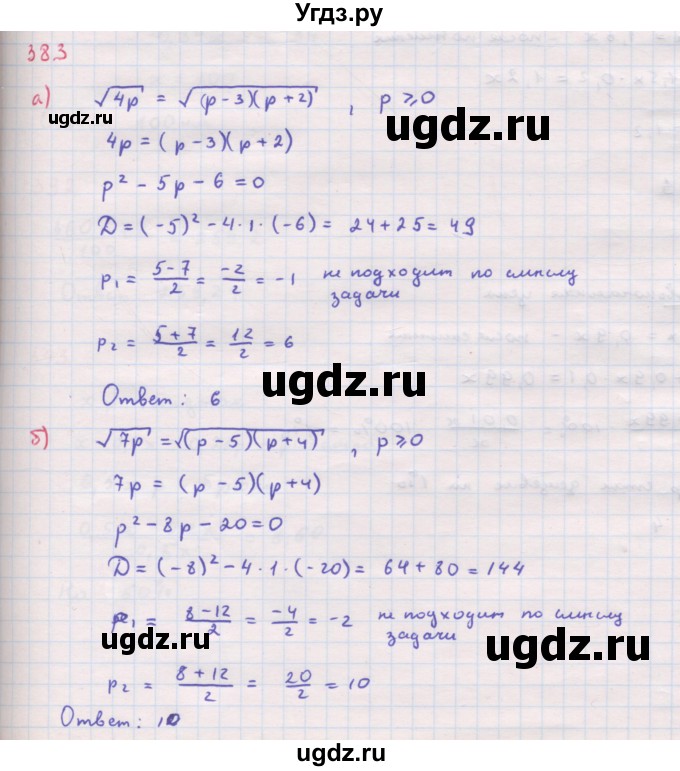 Угдз.ру
383
а) √4p = √(p-3)(p+2) , p ⩾ 0
ugdz.ru
ugdz.ru
4p = (p-3)(p+2)
p² - 5p - 6 = 0
D = (-5)² - 4·1·(-6) = 24+25 = 49
p₁ = 5-7/2 = -2/2 = -1 не подходит по смыслу
задачи
p₂ = 5+7/2 = 12/2 = 6
ugdz.ru
Ответ: 6
б) √7p = √(p-5)(p+4) , p ⩾ 0
7p = (p-5)(p+4)
ugdz.ru
p² - 8p - 20 = 0
D = (-8)² - 4·1·(-20) = 64+80 = 144
p₁ = 8-12/2 = -4/2 = -2 не подходит по смыслу
задачи
ugdz.ru
ugdz.ru
p₂ = 8+12/2 = 20/2 = 10
Ответ: 10
ugdz.ru